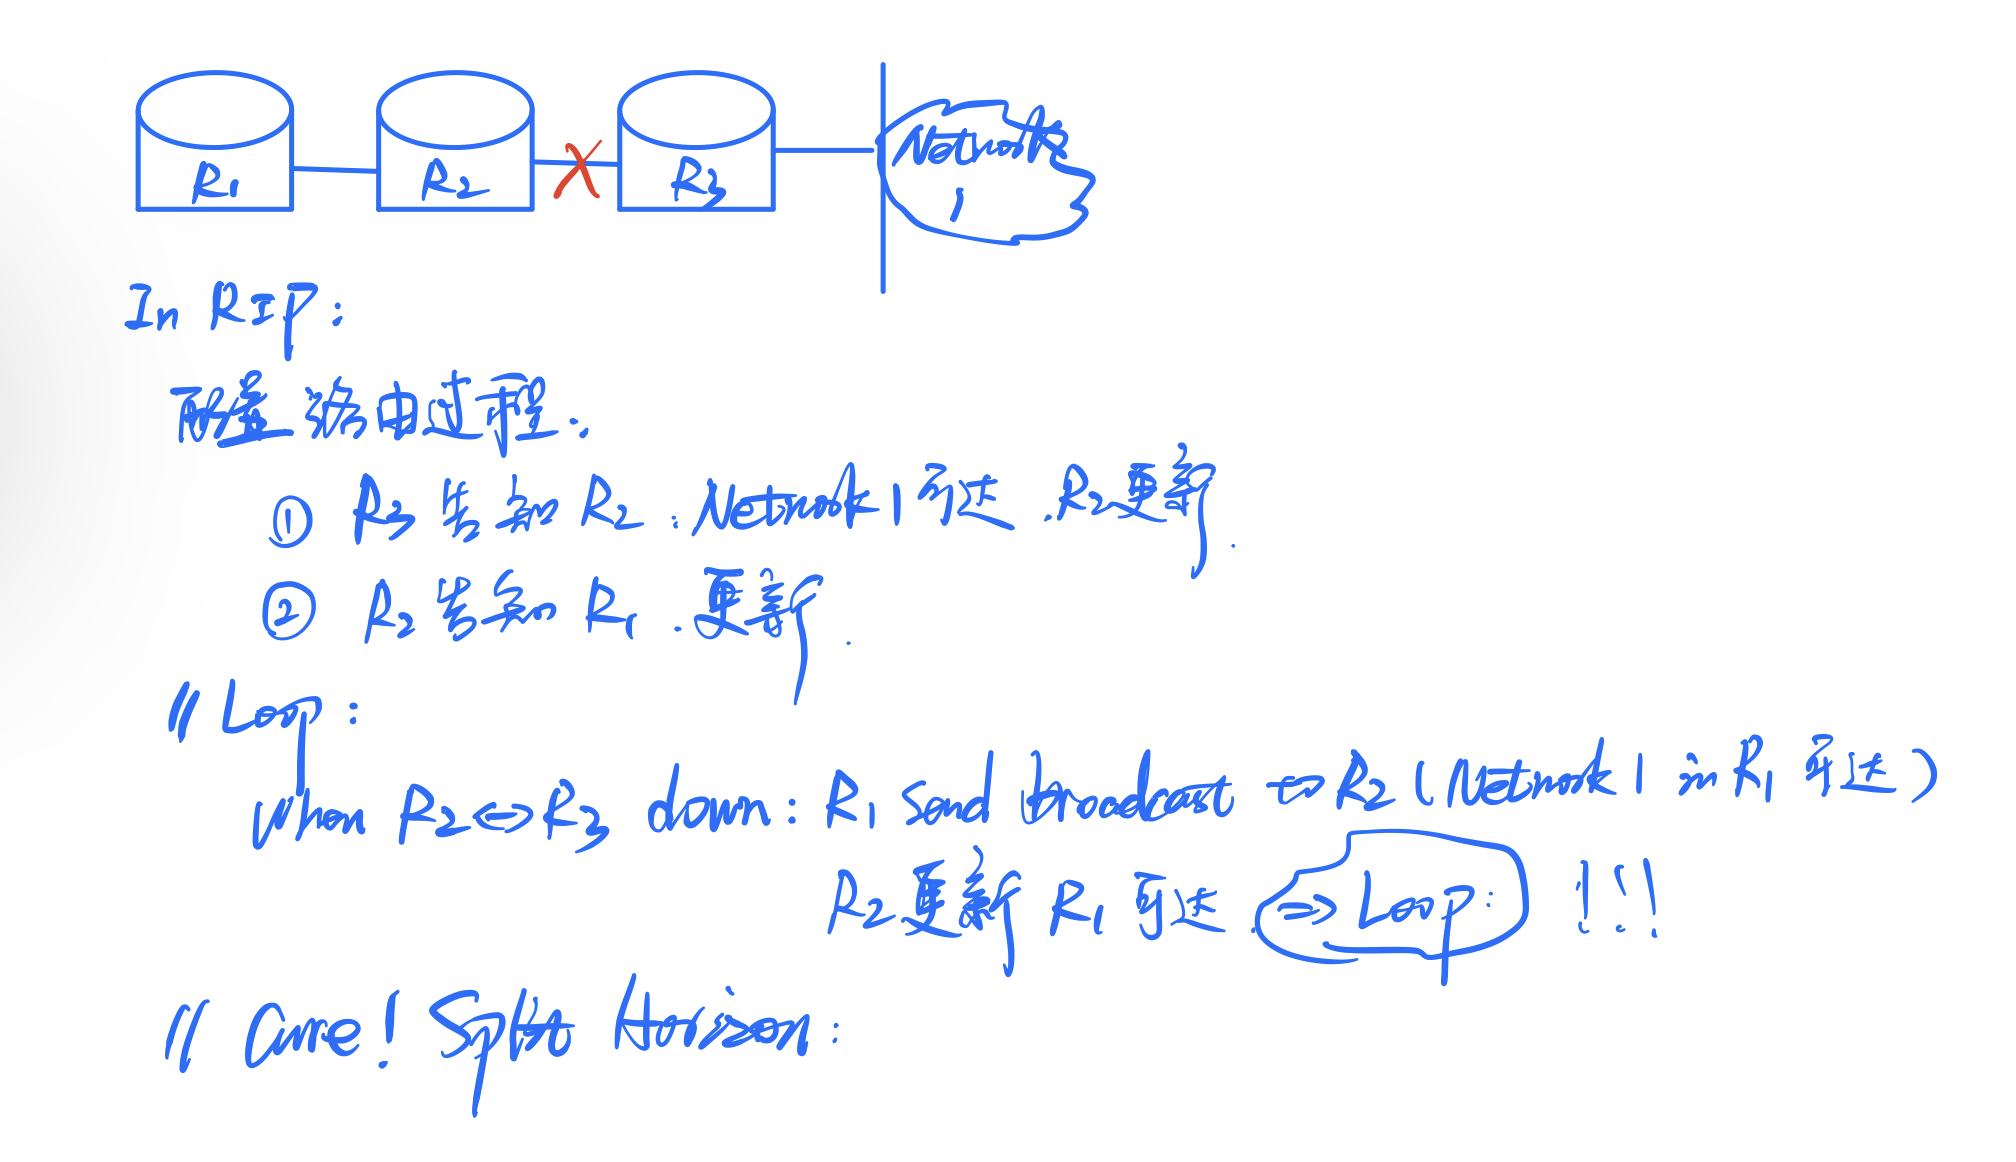 R1 R2 R3 Network 1
In RIP:
配置路由过程:
① R3 告知 R2: Network 1 可达. R2更新.
② R2 告知 R1. 更新.
// Loop:
When R2<=>R3 down: R1 send broadcast to R2 (Network 1 in R1 可达)
R2更新 R1 可达. => Loop: !!!
// Cure! Split Horizon: